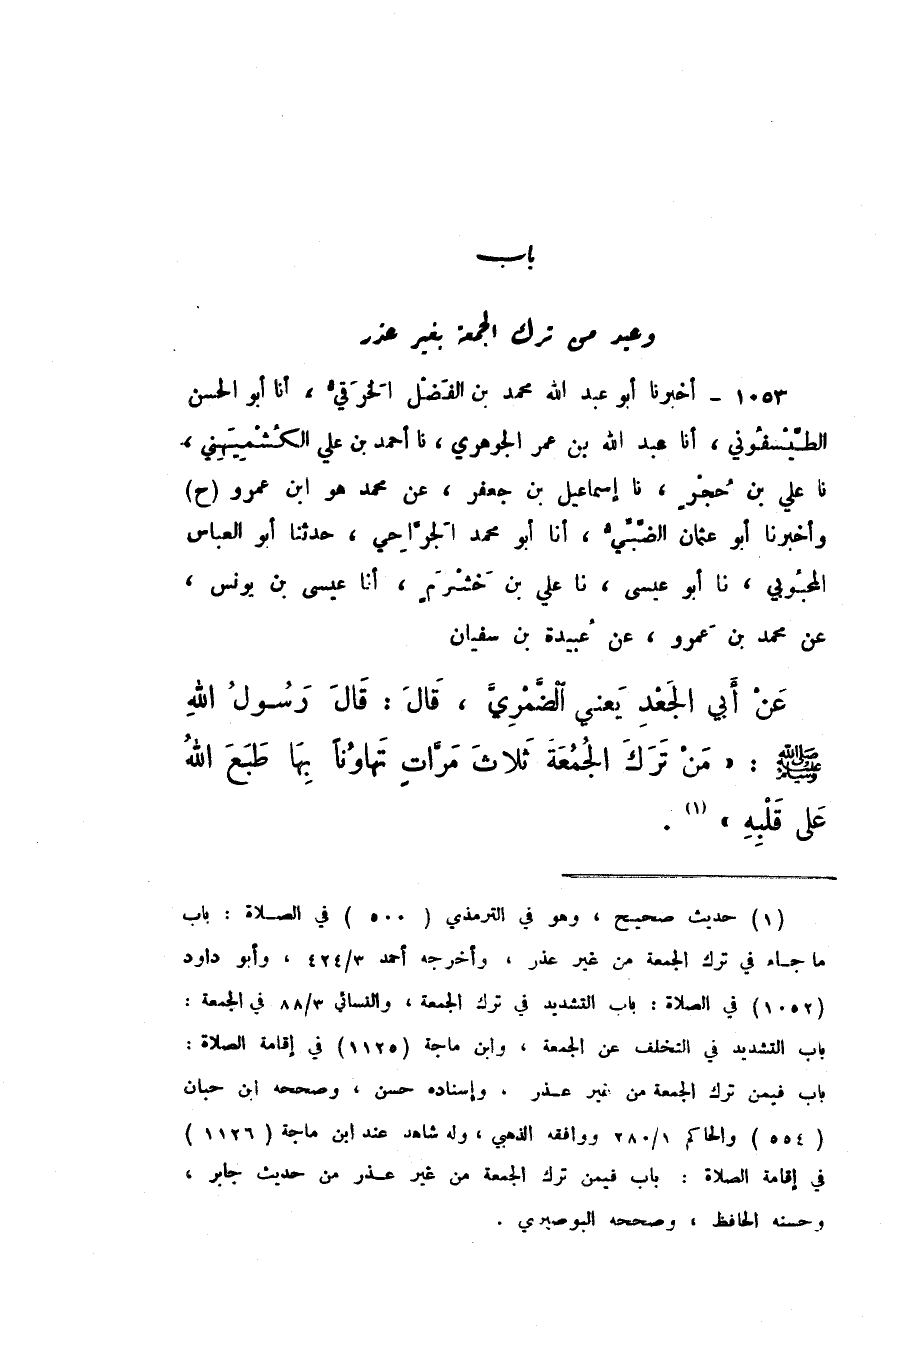 باب
وعيد من ترك الجمعة بغير عذر
١٠٥٣ - أخبرنا أبو عبد الله محمد بن الفَضْل الخَرَقيُّ ، أنا أبو الحسن
الطَّيْسَفُوني ، أنا عبد الله بن عمر الجوهري ، نا أحمد بن علي الكُشْمِيهَني ،
نا علي بن حُجْرٍ ، نا إسماعيل بن جعفر ، عن محمد هو ابن عمرو (ح)
وأخبرنا أبو عثمان الضَّبِّيُّ ، أنا أبو محمد الجَرَّاحِي ، حدثنا أبو العباس
المحبُوبي ، نا أبو عيسى ، نا علي بن خَشْرَمٍ ، أنا عيسى بن يونس ،
عن محمد بن عَمرو ، عن عُبيدة بن سفيان
عَنْ أَبي الجَعْدِ يَعني الضَّمْرِيَّ ، قَالَ : قَالَ رَسُولُ اللهِ
ﷺ : « مَنْ تَرَكَ الجُمُعَةَ ثَلاثَ مَرَّاتٍ تَهاوُناً بِهَا طَبَعَ اللهُ
عَلى قَلْبِهِ » (١) .
(١) حديث صحيح ، وهو في الترمذي ( ٥٠٠ ) في الصلاة : باب
ما جاء في ترك الجمعة من غير عذر ، وأخرجه أحمد ٤٢٤/٣ ، وأبو داود
(١٠٥٢) في الصلاة : باب التشديد في ترك الجمعة ، والنسائي ٨٨/٣ في الجمعة :
باب التشديد في التخلف عن الجمعة ، وابن ماجة (١١٢٥) في إقامة الصلاة :
باب فيمن ترك الجمعة من غير عذر . وإسناده حسن ، وصححه ابن حبان
( ٥٥٤ ) والحاكم ٢٨٠/١ ووافقه الذهبي ، وله شاهد عند ابن ماجة ( ١١٢٦ )
في إقامة الصلاة : باب فيمن ترك الجمعة من غير عذر من حديث جابر ،
وحسنه الحافظ ، وصححه البوصيري .